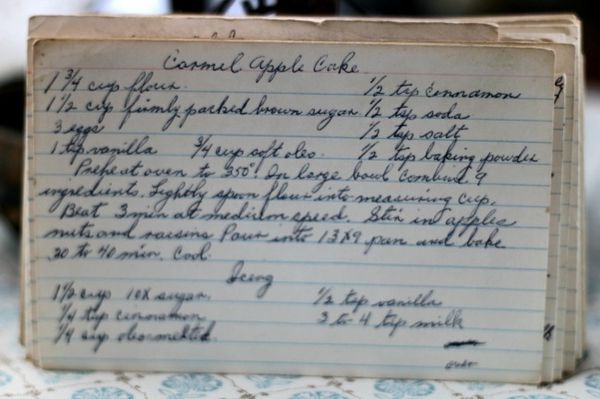 Carmel Apple Cake
1 3/4 cup flour 1/2 tsp cinnamon
1 1/2 cup firmly packed brown sugar 1/2 tsp soda
3 eggs 1/2 tsp salt
1 tsp vanilla 3/4 cup soft oleo 1/2 tsp baking powder
Preheat oven to 350° In large bowl combine 9
ingredients. Lightly spoon flour into measuring cup.
Beat 3 min at medium speed. Stir in apples
nuts and raisins Pour into 13x9 pan and bake
30 to 40 min. Cool.
Iceing
1 1/2 cup 10X sugar. 1/2 tsp vanilla
1/4 tsp cinnamon 3 to 4 tsp milk
1/4 cup oleo melted.
over